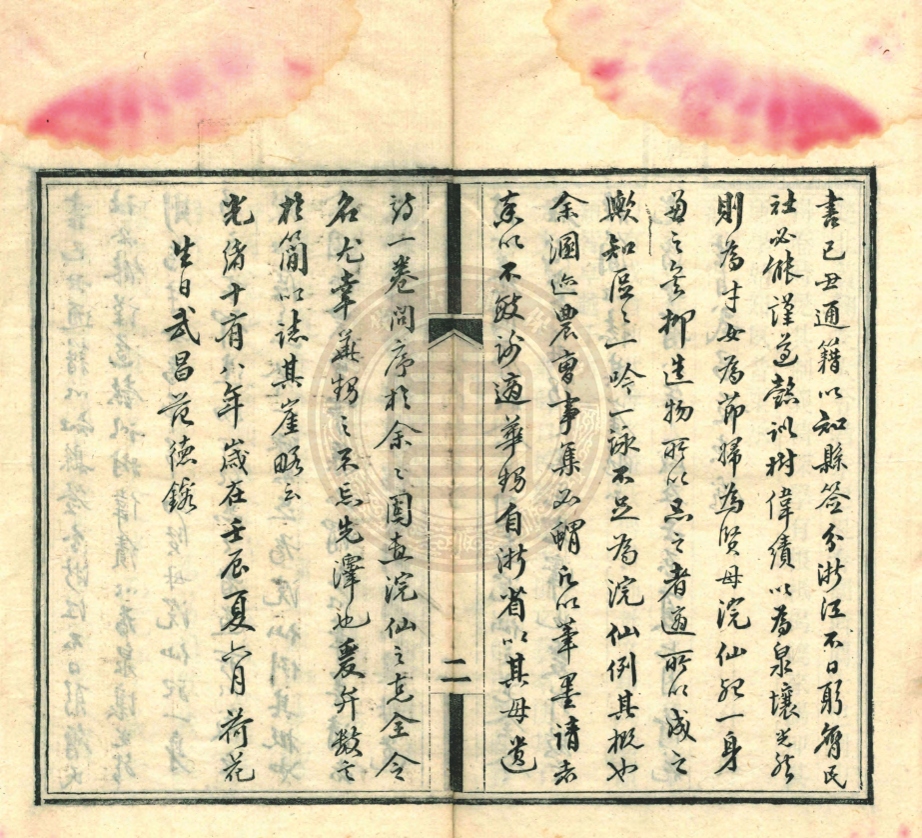 書已丑通籍以知縣簽分浙江不日躬膺民
社必能謹遵懿訓樹偉績以為泉壤光然
則為才女為節婦為賢母浣仙殆一身
兼之矣抑造物所以忌之者適所以成之
歟知區區一吟一詠不足為浣仙例其概也
余溷迹農曹事集如蝟凡以筆墨請者
率以不敏謝適華甥自浙省以其母遺
詩一卷問序於余余固喜浣仙之克全令
名尤幸華甥之不忘先澤也爰弁數言
於簡以誌其崖略云
光緒十有八年歲在壬辰夏六月荷花
生日武昌范德鎔
二